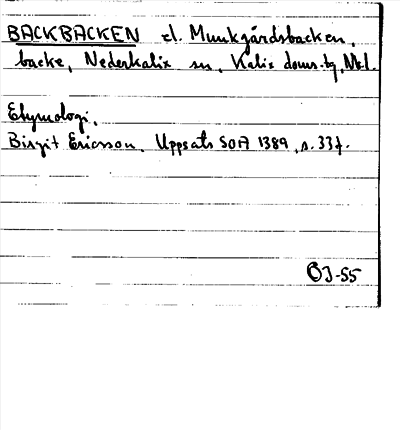 BACKBACKEN el. Munkgårdsbacken,
backe, Nederkalix sn, Kalix doms.tg, Nbl.
Etymologi.
Birgit Ericsson, Uppsats SOA 1389, s. 33f.
OJ-55